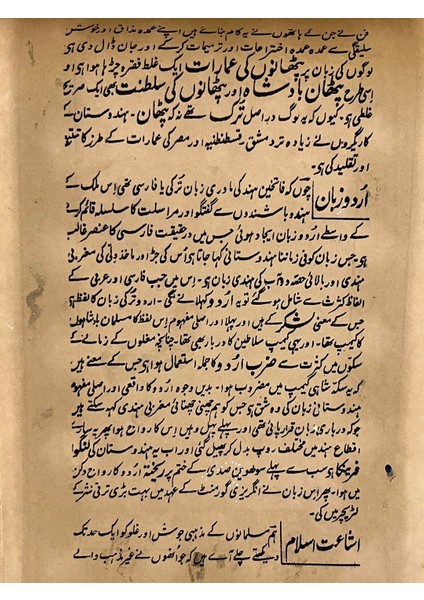 فن نے جن کے ہاتھوں نے یہ کام بنائے ہیں اپنے عمدہ مذاق اور خوش
سلیقگی سے عمدہ عمدہ اختراعات اور ترمیمات کر کے اور جان ڈال دی ہی
لوگوں کی زبان پر پٹھانوں کی عمارات ایک غلط فقرہ چڑھا ہوا ہی
اسی طرح پٹھان بادشاہ اور پٹھانوں کی سلطنت بھی ایک صریح
غلطی ہی۔ کیوں کہ یہ لوگ در اصل ترک تھے نہ کہ پٹھان۔ ہندوستان کے
کاریگروں نے زیادہ تر دمشق۔ قسطنطنیہ اور مصر کی عمارات کے طرز کا تتبع
اور تقلید کی ہی۔
اردو زبان
چوں کہ فاتحین ہند کی مادری زبان ترکی یا فارسی تھی اس ملک کے
ہندہ باشندوں سے گفتگو اور مراسلت کا سلسلہ قائم کرنے
کے واسطے اردو زبان ایجاد ہوئی جس میں در حقیقت فارسی کا عنصر غالب
ہی جس زبان کو فی زماننا ہندوستانی کہا جاتا ہی اُس کی جڑ اور ماخذ دلی کی مغربی
ہندی اور بالائی حصہ دوآب کی ہندی زبان ہی۔ اِس میں جب فارسی اور عربی کے
الفاظ کثرت سے شامل ہو گئے تو یہ اردو کہلانے لگی۔ اردو ترکی زبان کا لفظ ہی
جس کے معنی لشکر کے ہیں اور پہلا اور اصلی مفہوم اِس لفظ کا مسلمان بادشاہوں
کا کیمپ تھا۔ اور یہی کیمپ سلاطین کا دربار بھی تھا۔ چنانچہ مغلوں کے زمانے کے
سکّوں میں کثرت سے ضرب اردو کا جملہ استعمال ہوا ہی جس کے معنے ہیں
کہ یہ سکّہ شاہی کیمپ میں مضروب ہوا۔ بدیں وجوہ اردو کا واقعی اور اصلی مفہوم
ہندوستانی زبان کی وہ شق ہی جس کو ہم چھنی چھنائی مغربی ہندی کہہ سکتے ہیں
جو درباری زبان قرار پائی تھی اور پہلے پہل وہیں اِس کا رواج ہوا پھر یہ سارے
اقطاع ہند میں مختلف روپ بدل کر پھیل گئی اور اب یہ ہندوستان کی لنگوا
فرینکا ہی سب سے پہلے سولھویں صدی کے ختم پر ریختہ اردو کا رواج دکن
میں ہوا۔ پھر اس زبان نے انگریزی گورنمنٹ کے عہد میں بہت بڑی ترقی نثر کے
لٹریچر میں کی۔
اشاعت اسلام
ہم مسلمانوں کے مذہبی جوش اور غلو کو ایک حد تک
دیکھتے چلے آے ہیں کہ جو انھوں نے غیر مذہب والے